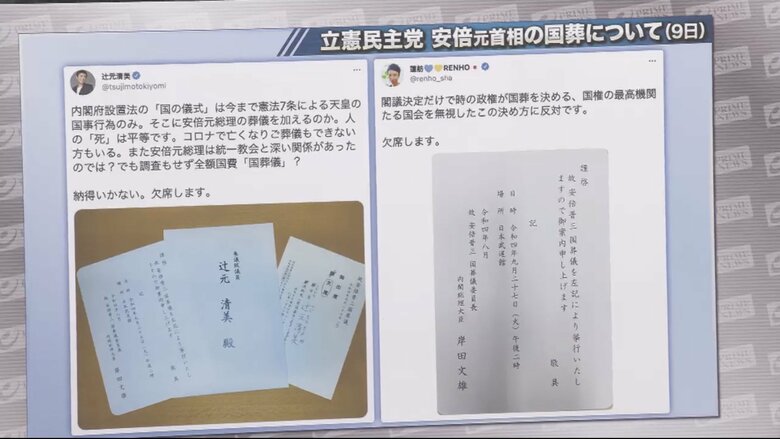 立憲民主党 安倍元首相の国葬について(9日)
辻元清美
@tsujimotokiyomi
内閣府設置法の「国の儀式」は今まで憲法7条による天皇の
国事行為のみ。そこに安倍元総理の葬儀を加えるのか。人
の「死」は平等です。コロナで亡くなりご葬儀もできない
方もいる。また安倍元総理は統一教会と深い関係があった
のでは?でも調査もせず全額国費「国葬儀」?
納得いかない。欠席します。
辻元 清美 殿
蓮舫💙💛RENHO🇯🇵
@renho_sha
閣議決定だけで時の政権が国葬を決める、国権の最高機関
たる国会を無視したこの決め方に反対です。
欠席します。
謹啓
故 安倍晋三 国葬儀を左記により挙行いたし
ますので御案内申し上げます
敬具
記
日時 令和四年九月二十七日(火)午後二時
場所 日本武道館
令和四年八月
故 安倍晋三 国葬儀委員長
内閣総理大臣 岸田文雄
PRIME NEWS